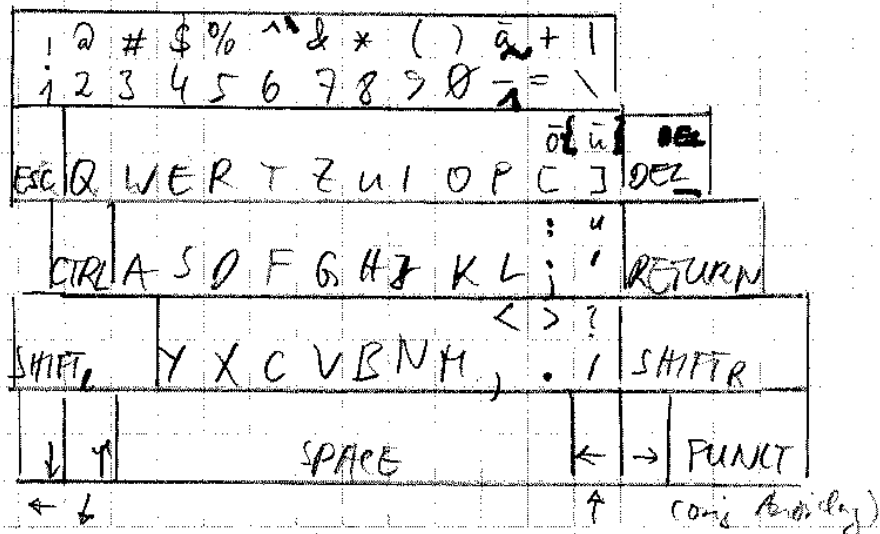 ! @ # $ % ^ & * ( ) _ + |
1 2 3 4 5 6 7 8 9 0 - = \
ō{ ū} DEL
ESC Q W E R T Z U I O P [ ] DEL
: "
CTRL A S D F G H J K L ; ' RETURN
< > ?
SHIFT Y X C V B N M , . / SHIFT R
↓ ↑ SPACE ← → FUNCT
← ↓ ↑